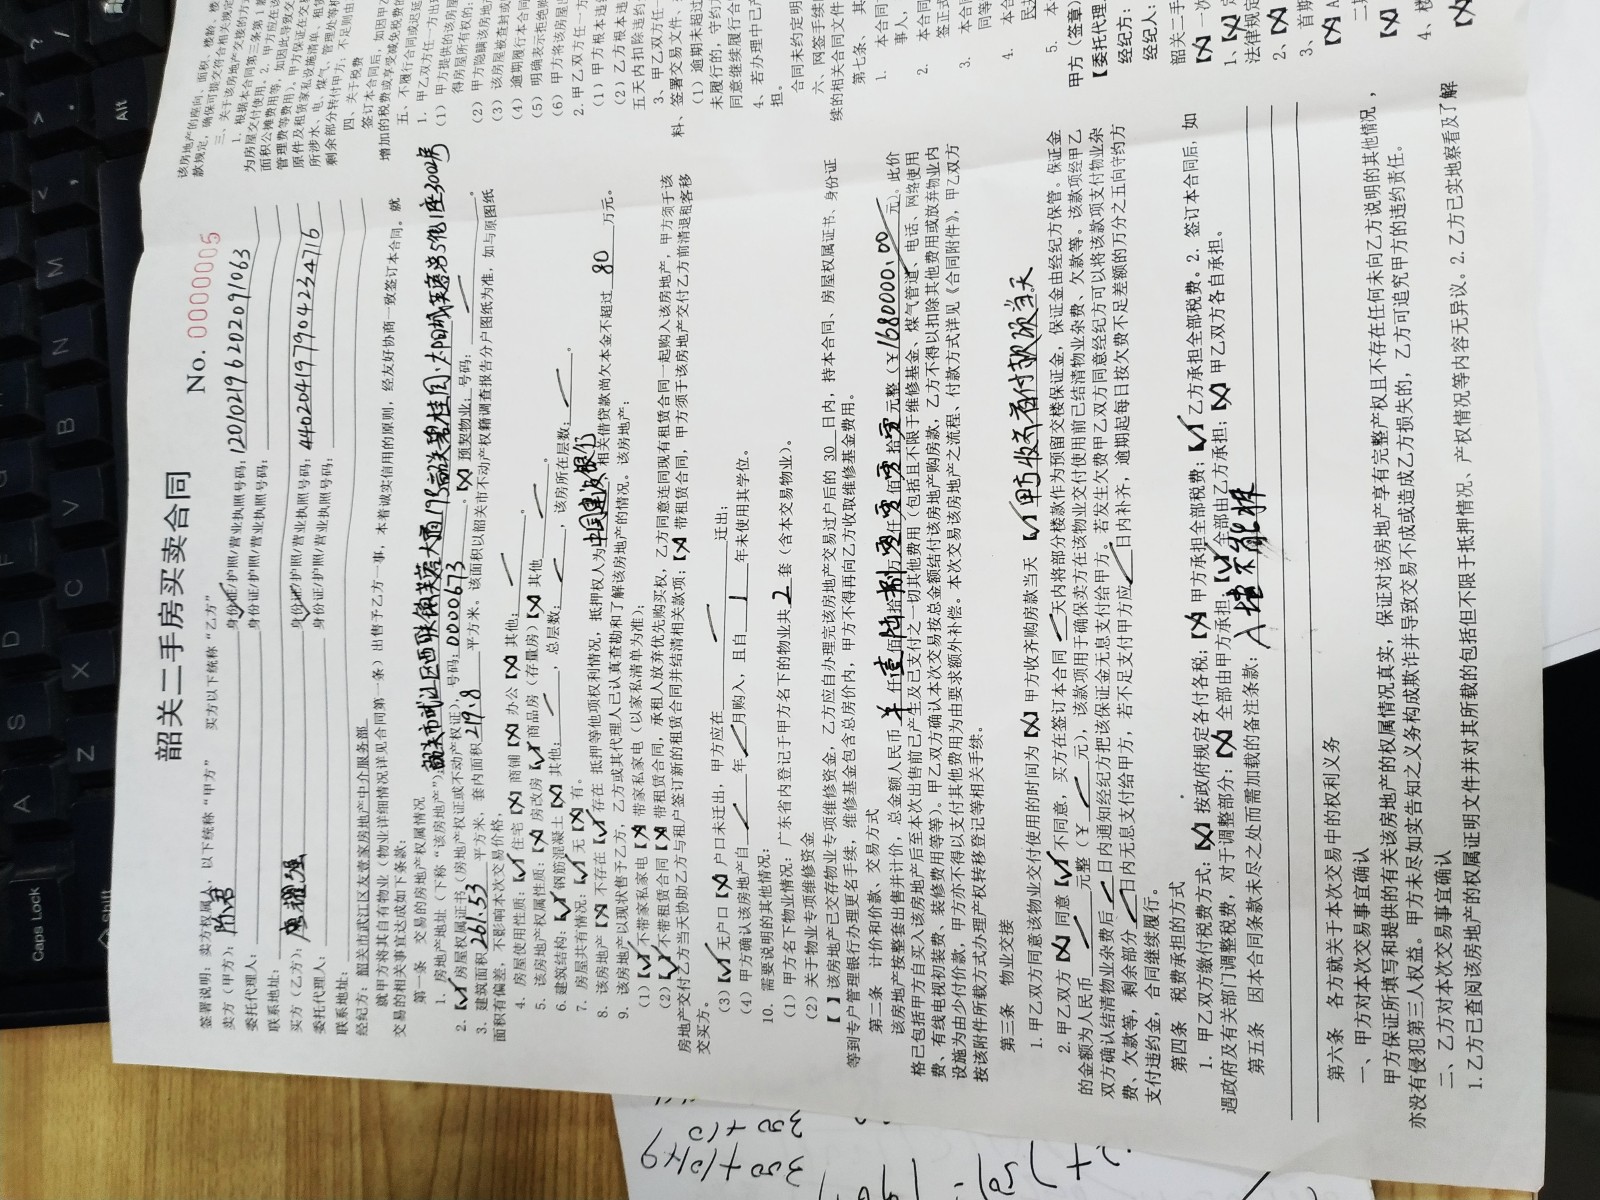 韶关二手房买卖合同
No. 0000005
签署说明：卖方权属人，以下统称“甲方” 买方以下统称“乙方”
卖方（甲方）： 身份证/护照/营业执照号码：120102196202091063
委托代理人： 身份证/护照/营业执照号码：
联系地址：
买方（乙方）： 身份证/护照/营业执照号码：440204197904234716
委托代理人： 身份证/护照/营业执照号码：
联系地址：
经纪方：韶关市武江区友壹家房地产中介服务部
就甲方将其自有物业（物业详细情况详见合同第一条）出售予乙方一事，本着诚实信用的原则，经友好协商一致签订本合同。就
交易的相关事宜达成如下条款：
第一条 交易的房地产权属情况
1. 房地产地址（下称“该房地产”）：韶关市武江区西联镇芙蓉大道19号韶关碧桂园·太阳城芙蓉湾5街1座300号
2.【✓】房屋权属证书（房地产权证或不动产权证），号码：0000673。【X】预契物业；号码：
3. 建筑面积261.53平方米，套内面积219.8平方米，该面积以韶关市不动产权籍调查报告分户图纸为准，如与原图纸
面积有偏差，不影响本次交易价格。
4. 房屋使用性质：【✓】住宅【X】商铺【X】办公【X】其他：
5. 该房地产权属性质：【X】房改房【✓】商品房（存量房）【X】其他
6. 建筑结构：【✓】钢筋混凝土【X】其他：，总层数：，该房所在层数：。
7. 房屋共有情况：【✓】无【X】有。
8. 该房地产【X】不存在【✓】存在 抵押等他项权利情况，抵押权人为中国建设银行相关借贷款尚欠本金不超过80万元。
9. 该房地产以现状售予乙方，乙方或其代理人已认真查勘和了解该房地产的情况。该房地产：
（1）【✓】不带家私家电【X】带家私家电（以家私清单为准）；
（2）【✓】不带租赁合同【X】带租赁合同，承租人放弃优先购买权，乙方同意连同现有租赁合同一起购入该房地产，甲方须于该
房地产交付乙方当天协助乙方与租户签订新的租赁合同并结清相关款项；【X】带租赁合同，甲方须于该房地产交付乙方前清退租客移
交买方。
（3）【✓】无户口【X】户口未迁出，甲方应在 迁出；
（4）甲方确认该房地产自 年 月购入，且自1年未使用其学位。
10. 需要说明的其他情况：
（1）甲方名下物业情况：广东省内登记于甲方名下的物业共2套（含本交易物业）。
（2）关于物业专项维修资金
【 】该房地产已交存物业专项维修资金，乙方应自办理完该房地产交易过户后的30日内，持本合同、房屋权属证书、身份证
等到专户管理银行办理更名手续，维修基金包含总房价内，甲方不得再向乙方收取维修基金费用。
第二条 计价和价款、交易方式
该房地产按整套出售并计价，总金额人民币 仟壹佰陆拾捌万零仟零佰零拾零元整（￥1680000.00元）。此价
格已包括甲方自买入该房地产后至本次出售前已产生及已支付之一切其他费用（包括且不限于维修基金、煤气管道、电话、网络使用
费、有线电视初装费、装修费用等等）。甲乙双方确认本次交易按总金额结付该房地产购房款，乙方不得以扣除其他费用或放弃物业内
设施为由少付价款，甲方亦不得以支付其他费用为由要求额外补偿。本次交易该房地产之流程、付款方式详见《合同附件》，甲乙双方
按该附件所载方式办理产权转移登记等相关手续。
第三条 物业交接
1. 甲乙双方同意该物业交付使用的时间为【X】甲方收齐购房款当天【✓】甲方收齐首付款项当天
2. 甲乙双方【X】同意【✓】不同意，买方在签订本合同 天内将部分楼款作为预留交楼保证金，保证金由经纪方保管。保证金
的金额为人民币 元整（￥ 元），该款项用于确保卖方在该物业交付使用前已结清物业杂费、欠款等。该款项经甲乙
双方确认结清物业杂费后 日内通知经纪方把该保证金无息支付给甲方。若发生欠费甲乙双方同意经纪方可以将该款项支付物业杂
费、欠款等，剩余部分 日内无息支付给甲方，若不足支付甲方应 日内补齐，逾期起每日按欠费不足差额的万分之五向守约方
支付违约金，合同继续履行。
第四条 税费承担的方式
1. 甲乙双方缴付税费方式：【X】按政府规定各付各税；【X】甲方承担全部税费；【✓】乙方承担全部税费。2. 签订本合同后，如
遇政府及有关部门调整税费，对于调整部分：【X】全部由甲方承担；【✓】全部由乙方承担；【X】甲乙双方各自承担。
第五条 因本合同条款未尽之处而需加载的备注条款：
第六条 各方就关于本次交易中的权利义务
一、甲方对本次交易事宜确认
甲方保证所填写和提供的有关该房地产的权属情况真实，保证对该房地产享有完整产权且不存在任何未向乙方说明的其他情况，
亦没有侵犯第三人权益。甲方未尽如实告知之义务构成欺诈并导致交易不成或造成乙方损失的，乙方可追究甲方的违约责任。
二、乙方对本次交易事宜确认
1. 乙方已查阅该房地产的权属证明文件并对其所载的包括但不限于抵押情况、产权情况等内容无异议。2. 乙方已实地察看及了解
该房地产的座向、面积、楼龄、楼
三、关于该房地产交接的方
四、关于税费
签订本合同后，如因甲乙
增加的税费或享受减免税费的
五、不履行合同或迟延
1. 甲乙双方任一方出
（1）甲方提供的该房屋
得房屋所有权的；
（2）甲方隐瞒该房地产
（3）该房屋被查封或
（4）逾期履行本合同
（5）明确表示拒绝
（6）甲方将该房屋出
2. 甲乙双方任一方
（1）甲方根本违
（2）乙方根本违
五天内扣除违约
3. 甲乙双方任一
料、签署交易文件、
（1）逾期未超过
未履行的，守约方
同意继续履行合同
4. 若办理中已产
担。
合同未约定明
六、网签手续
续的相关合同文件
第七条、其
1. 本合同
事人，
2. 本合同
签正式
3. 本合同
同等
4. 本合
5. 本
甲方（签章）
【委托代理人
经纪方：
经纪人：
韶关二手
【X】一次
1、【X】
法律规定
2、【X】
3、首期
【X】A
二期
4、楼
【X】
Caps Lock
Shift
Alt
A
S
D
Z
X
C
V
B
N
M